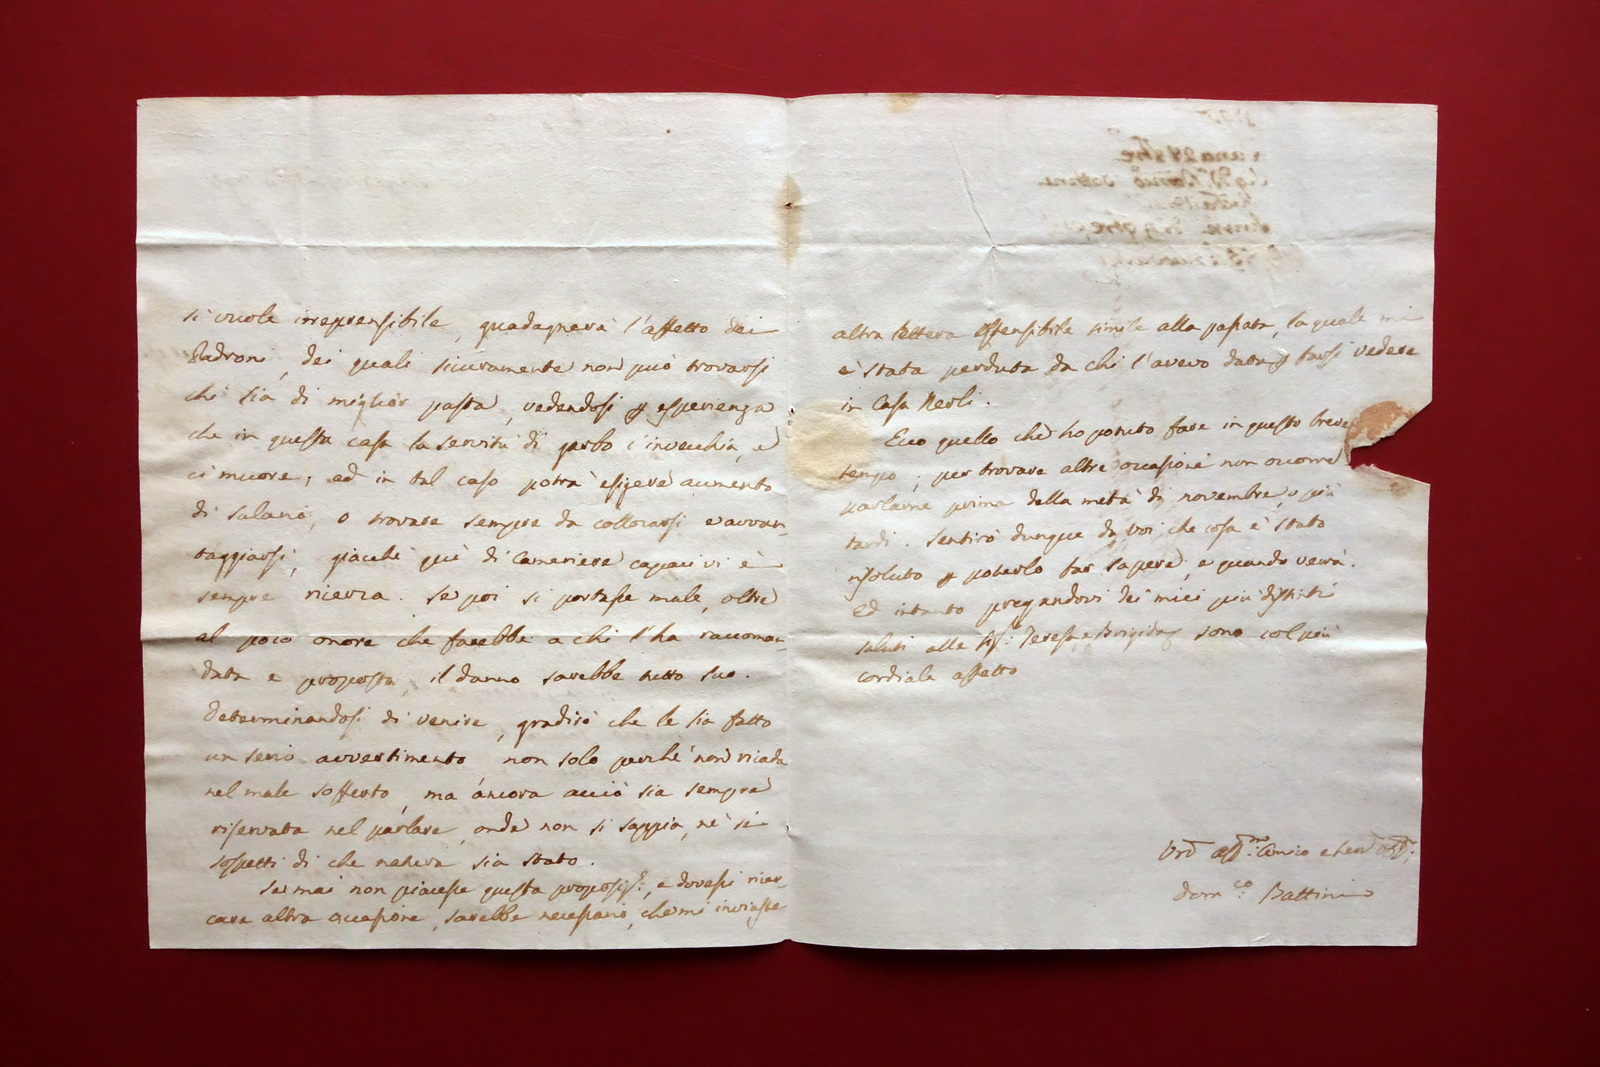 si vuole irreprensibile, guadagnerà l'affetto dei
Padroni, dei quali sicuramente non può trovarsi
chi sia di miglior pasta, vedendosi p esperienza
che in questa casa la servitù di garbo c'invecchia, e
ci muore, ed in tal caso potrà esigere aumento
di salario, o trovare sempre da collocarsi e avvan-
taggiarsi, giacchè quì di Cameriere capaci vi è
sempre ricerca. Se poi si portasse male, oltre
al poco onore che farebbe a chi l'ha raccoman-
data e proposta, il danno sarebbe tutto suo.
Determinandosi di venire, gradirò che le sia fatto
un serio avvertimento non solo perchè non ricada
nel male sofferto, ma ancora acciò sia sempre
riservata nel parlare, onde non si sappia, nè si
sospetti di che natura sia stato.
Se mai non piacesse questa proposiz.e, e dovessi ricer-
care altra occasione, sarebbe necessario, che mi inviaste
altra lettera ostensibile simile alla passata, la quale mi
è stata perduta da chi l'avevo data p farsi vedere
in Casa Nerli.
Ecco quello che ho potuto fare in questo breve
tempo; per trovare altre occasioni non occorre
parlarne prima della metà di novembre, o più
tardi. Sentirò dunque da voi, che cosa è stato
risoluto p poterlo far sapere, e quando verrà.
Ed intanto pregandovi dei miei più distinti
saluti alle Sig.e Teresa, e Brigida, sono col più
cordiale affetto
Amico
Dom.co Battini